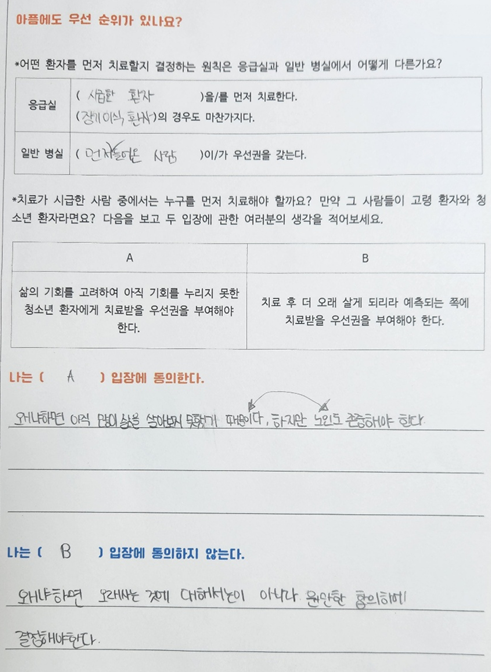 아픔에도 우선 순위가 있나요?
*어떤 환자를 먼저 치료할지 결정하는 원칙은 응급실과 일반 병실에서 어떻게 다른가요?
응급실
( 시급한 환자 )을/를 먼저 치료한다.
(장기이식 환자)의 경우도 마찬가지다.
일반 병실
( 먼저 들어온 사람 )이/가 우선권을 갖는다.
*치료가 시급한 사람 중에서는 누구를 먼저 치료해야 할까요? 만약 그 사람들이 고령 환자와 청
소년 환자라면요? 다음을 보고 두 입장에 관한 여러분의 생각을 적어보세요.
A
B
삶의 기회를 고려하여 아직 기회를 누리지 못한
청소년 환자에게 치료받을 우선권을 부여해야
한다.
치료 후 더 오래 살게 되리라 예측되는 쪽에
치료받을 우선권을 부여해야 한다.
나는 ( A ) 입장에 동의한다.
왜냐하면 아직 많이 삶을 살아보지 못했기 때문이다, 하지만 노인도 존중해야 한다.
나는 ( B ) 입장에 동의하지 않는다.
왜냐하면 오래사는 것에 대해서는이 아니라 원만한 합의하에
결정해야한다.